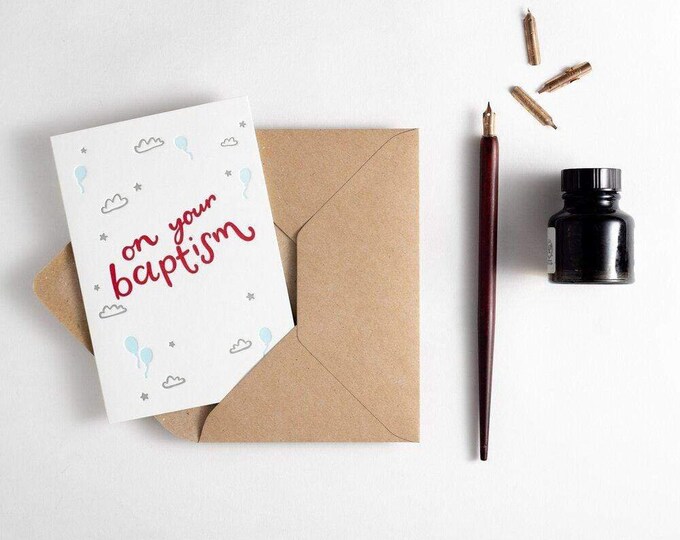 on your
baptism